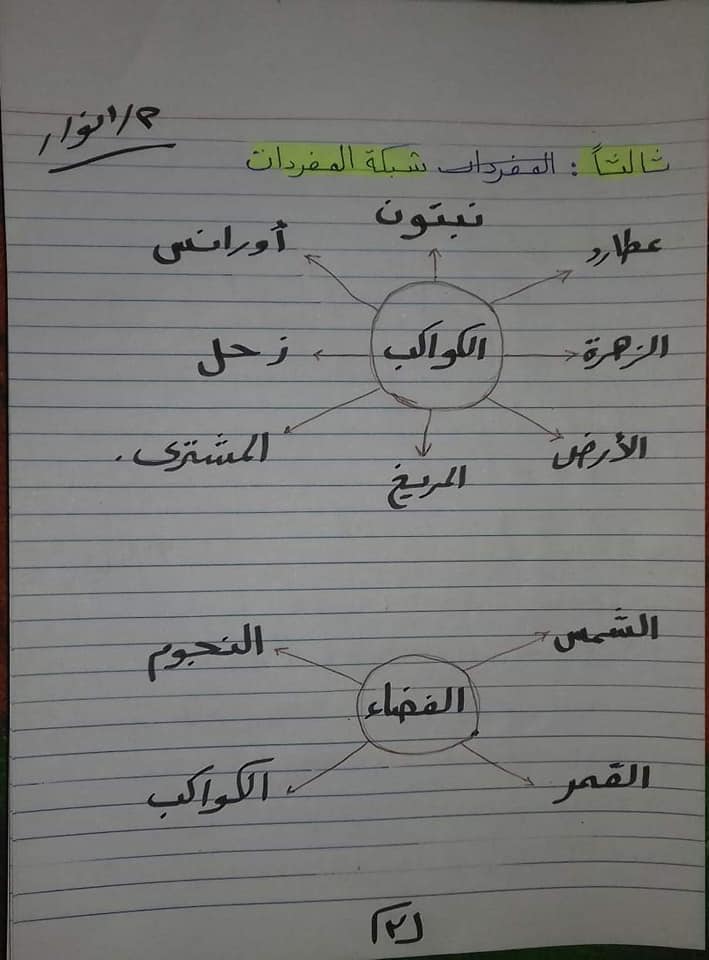 م/انوار
ثالثاً : المفردات شبكة المفردات
نبتون
عطارد
أورانس
الكواكب
الزهرة
زحل
الأرض
المشترى .
المريخ
الشمس
النجوم
الفضاء
القمر
الكواكب
(٢)